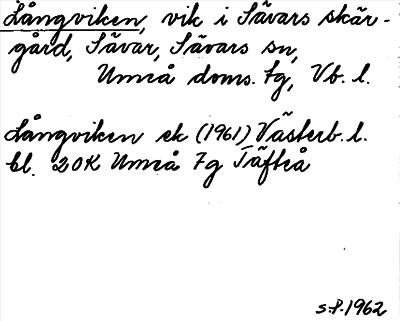 Långviken, vik i Sävars skär-
gård, Sävar, Sävars sn,
Umeå doms. tg, Vb. l.
Långviken ek (1961) Västerb. l.
bl. 20K Umeå 7g Täfteå
s.P. 1962